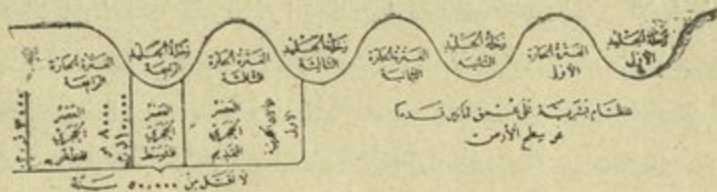 زحلة الجليد الأولى
الفترة الحارة الأولى
زحلة الجليد الثانية
الفترة الحارة الثانية
زحلة الجليد الثالثة
الفترة الحارة الثالثة
زحلة الجليد الرابعة
الفترة الحارة الرابعة
عظام بشرية على عمق ثمانين قدما
عن سطح الأرض
العصر الحجري القديم
العصر الحجري المتوسط
العصر الحجري
لا تقل عن ٥٠٫٠٠٠ سنة